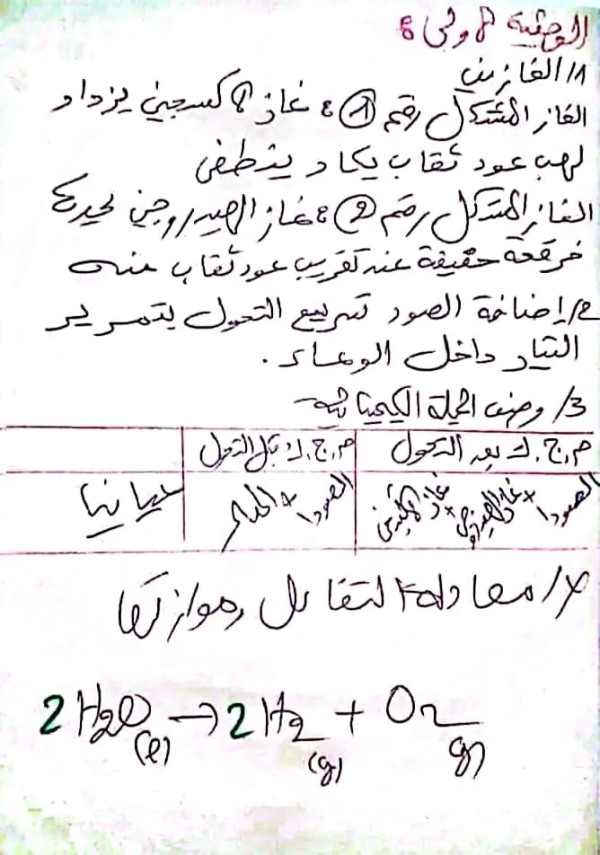 الوضعية الأولى :
1/ الغازين
الغاز المشكل رقم ① : غاز الأكسجين يزداد
لهب عود ثقاب يكاد ينطفئ
الغاز المشكل رقم ② : غاز الهيدروجين يحدث
فرقعة خفيفة عند تقريب عود ثقاب منه
2/ إضافة الصود تسريع التحول بتمرير
التيار داخل الوعاء .
3/ وصف الجملة الكيميائية
م.ج.ك بعد التحول م.ج.ك قبل التحول
الصودا + غاز الهيدروجين + غاز الأكسجين الصودا + الماء عيانيا
4/ معادلة التفاعل وموازنتها
2 H2O(l) → 2 H2(g) + O2(g)